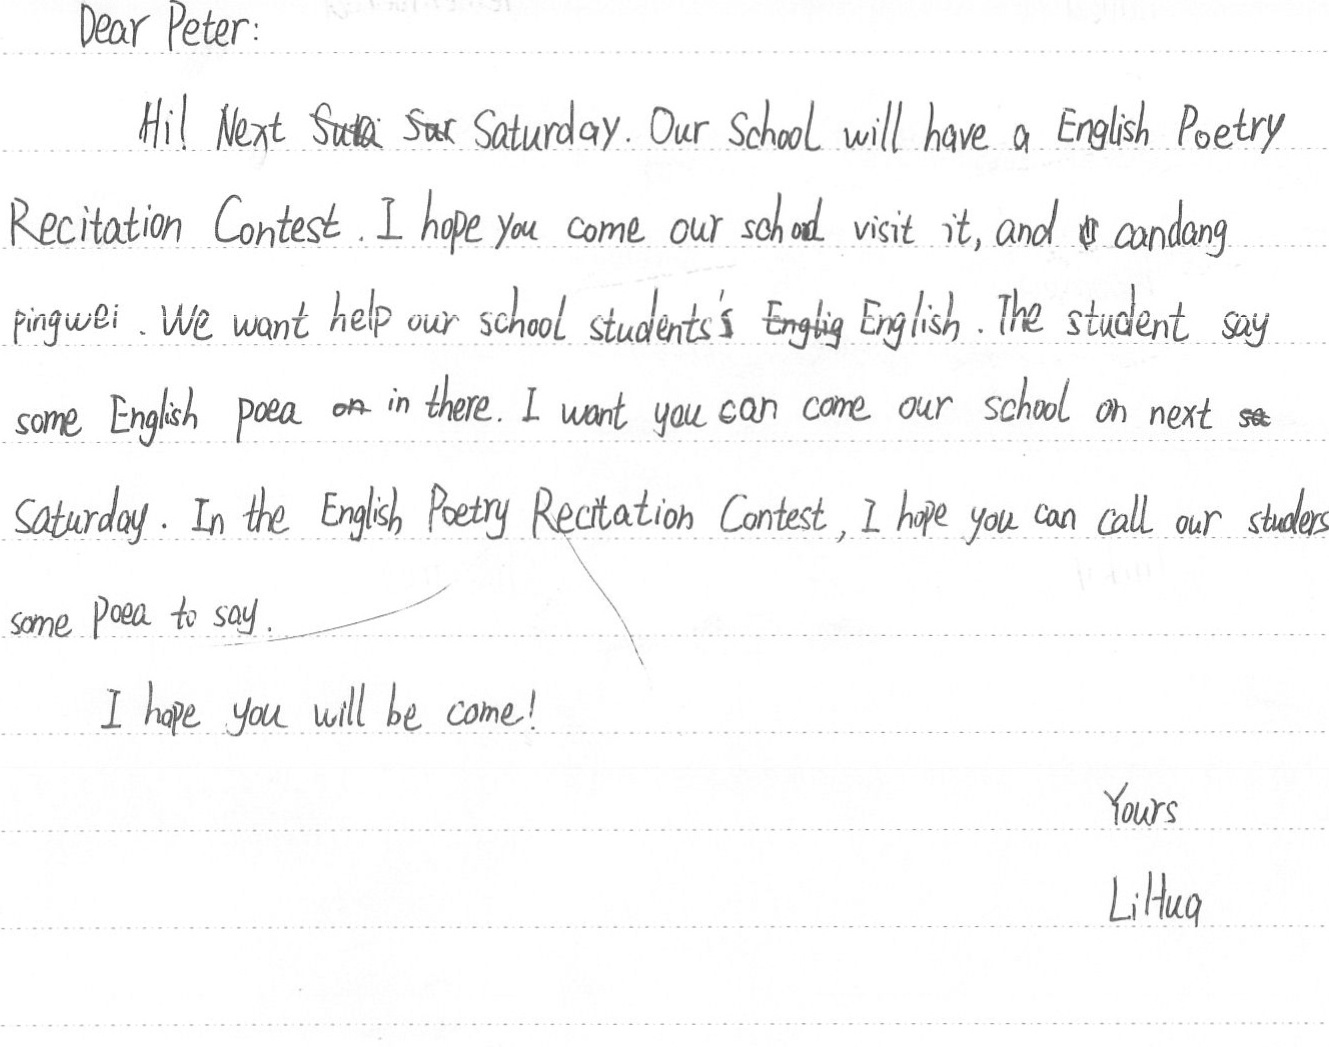 Dear Peter:
Hi! Next Saturday. Our School will have a English Poetry
Recitation Contest. I hope you come our school visit it, and candang
pingwei. We want help our school students's English. The student say
some English poea in there. I want you can come our school on next
Saturday. In the English Poetry Recitation Contest, I hope you can call our studers
some poea to say.
I hope you will be come!
Yours
LiHua